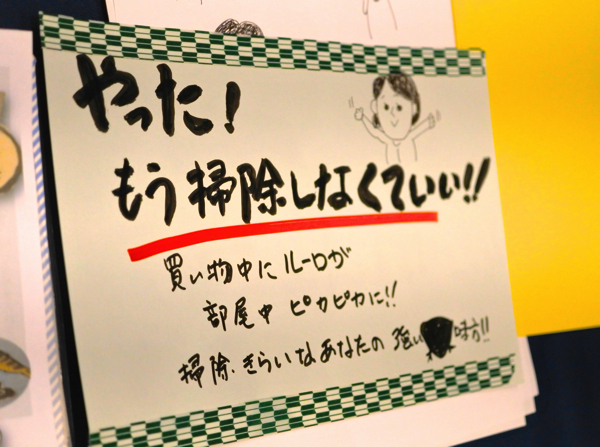 やった!
もう掃除しなくていい!!
買い物中にルーロが
部屋中ピカピカに!!
掃除きらいなあなたの強い味方!!